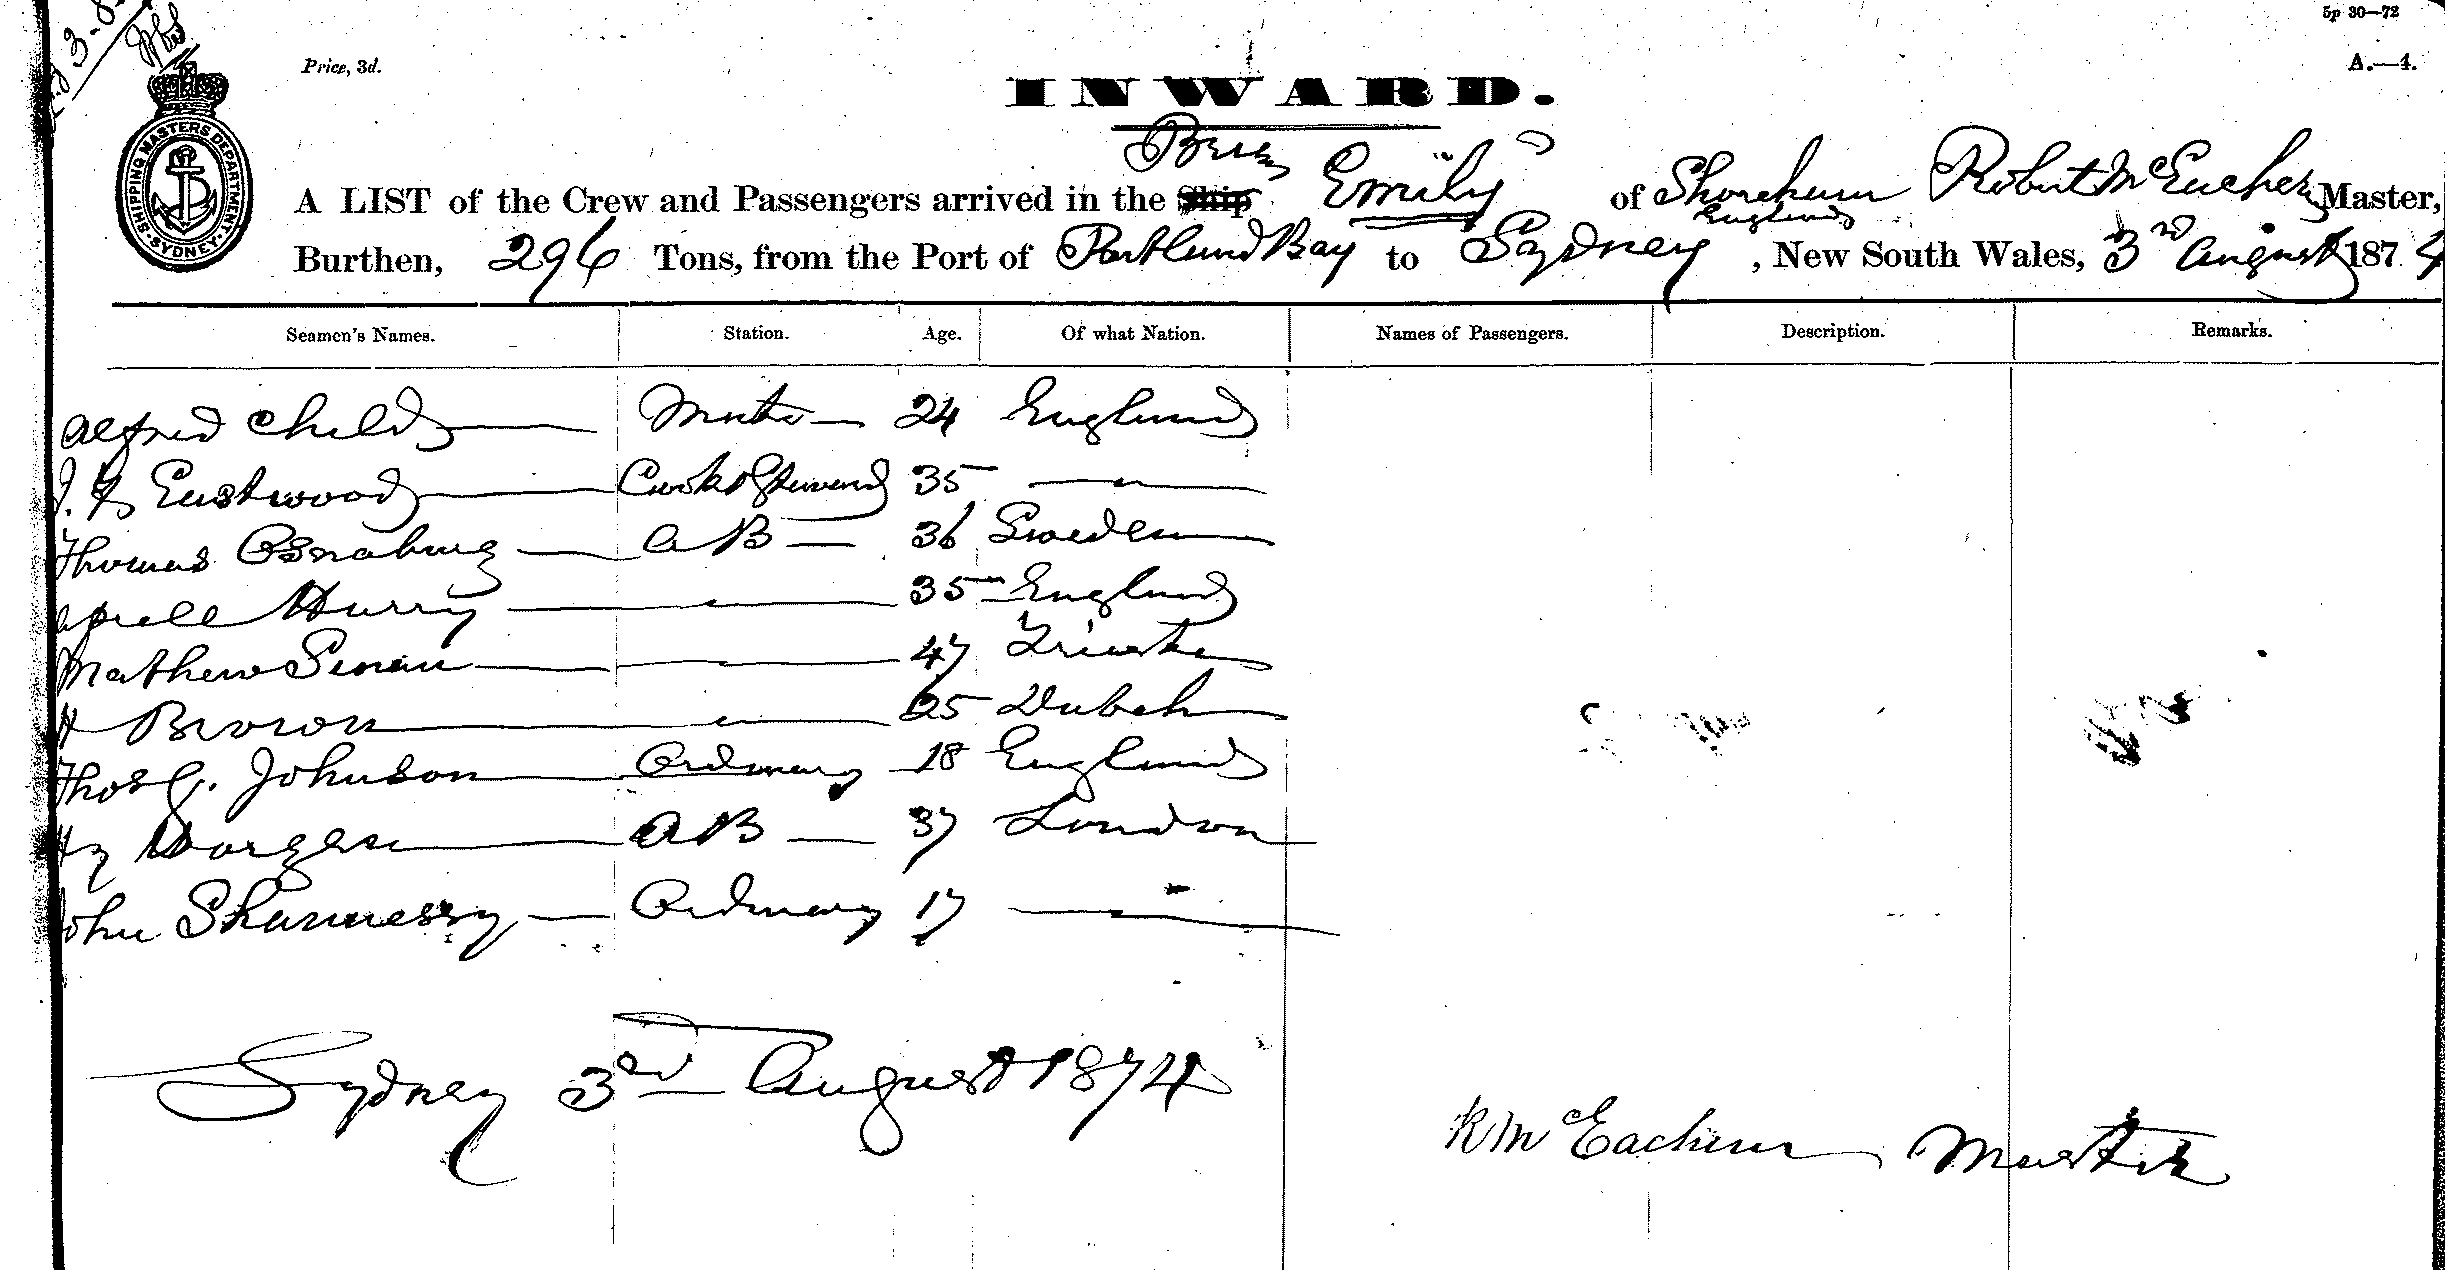 5p 30—72
Price, 3d.
A.—4.
SHIPPING MASTERS DEPARTMENT SYDNEY
INWARD.
A LIST of the Crew and Passengers arrived in the Ship "Emily" of Shoreham England Robert McEachern Master,
Burthen, 296 Tons, from the Port of Portland Bay to Sydney, New South Wales, 3rd August 1874
Seamen's Names. Station. Age. Of what Nation. Names of Passengers. Description. Remarks.
Alfred Childs Mate 24 England
Eastwood Cook & Steward 35 —"—
Thomas Osnaburg AB 36 Sweden
Harry —"— 35 England
Mathew —"— 47 Trieste
H Brown —"— 25
Thos G. Johnson Ordinary 18 England
Hy AB 37 London
John Shannessy Ordinary 17 —"—
Sydney 3rd August 1874
R McEachern Master